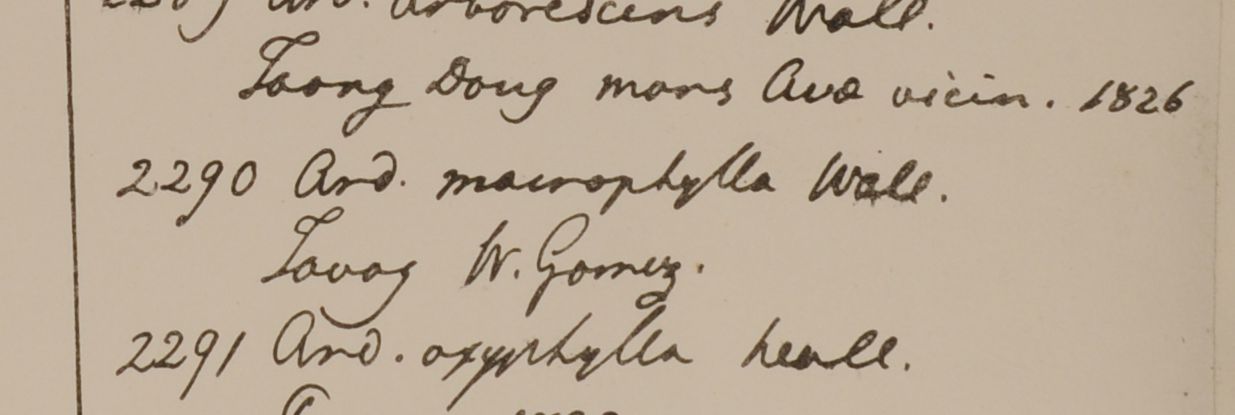 2289 Ard. arborescens Wall.
Taong Doug mons Avæ vicin. 1826
2290 Ard. macrophylla Wall.
Tavoy W. Gomez.
2291 Ard. oxyphylla Wall.